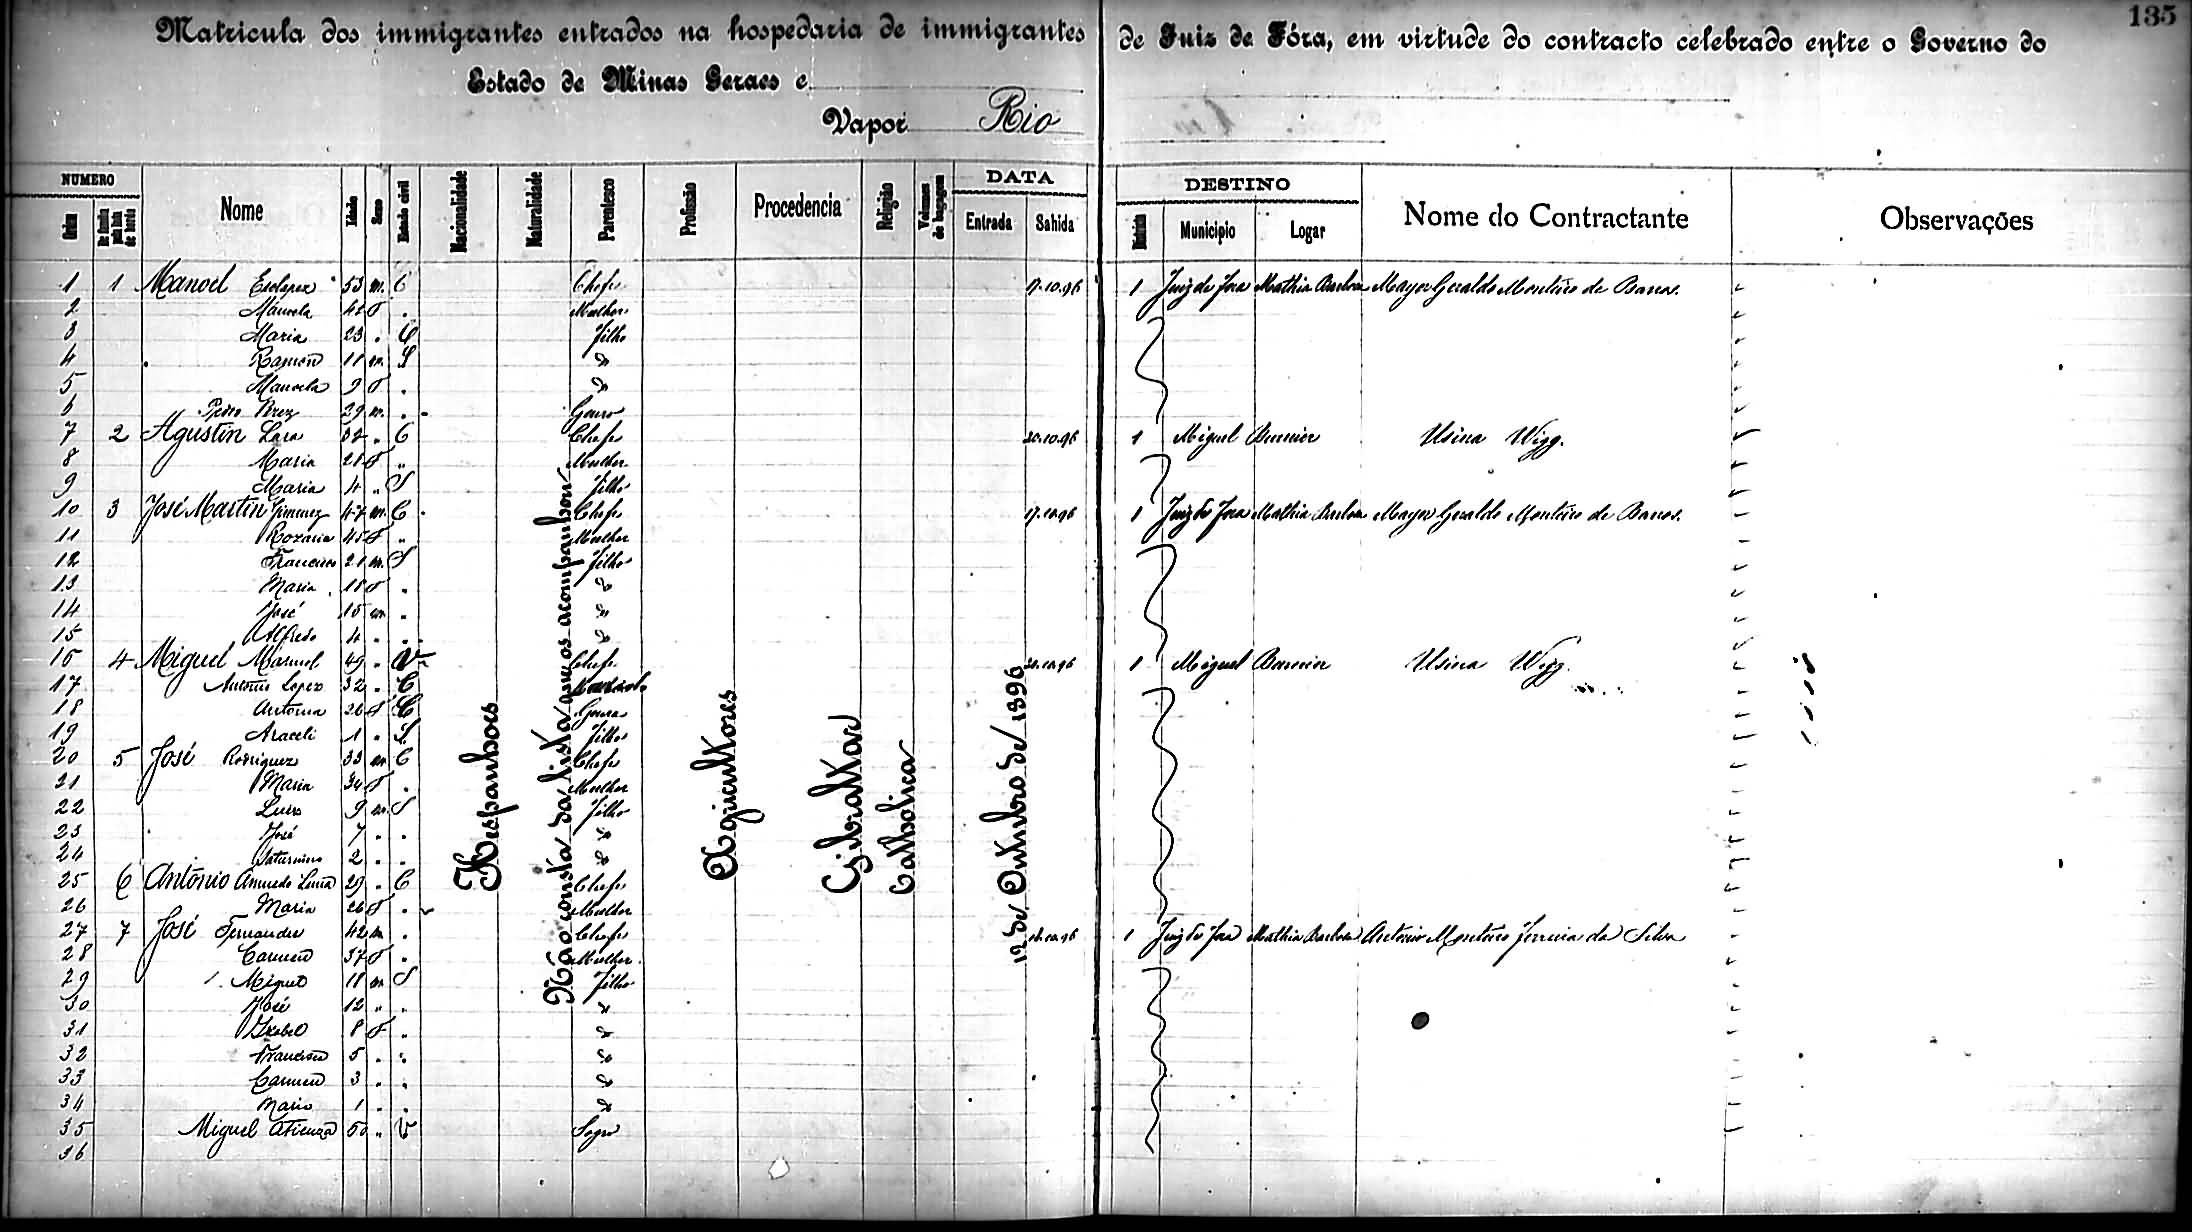 135
Matricula dos immigrantes entrados na hospedaria de immigrantes de Juiz de Fóra, em virtude do contracto celebrado entre o Governo do
Estado de Minas Geraes e
Vapor Rio
NUMERO DATA DESTINO
Ordem De familia pela lista de bordo Nome Idade Sexo Estado civil Nacionalidade Naturalidade Parentesco Profissão Procedencia Religião Volumes de bagagem Entrada Sahida Districto Municipio Logar Nome do Contractante Observações
1 1 Manoel 53 m. C Chefe 17.10.96 1 Juiz de Fora Mathias Barbosa Mayor Geraldo Monteiro de Barros.
2 Manoela 42 F . Mulher
3 Maria 23 . C Filho
4 Ramon 11 m. S "
5 Manoela 9 F . "
6 Pedro Perez 29 m. . Genro
7 2 Agustin Lara 32 . C Chefe 20.10.96 1 Miguel Burnier Usina Wigg.
8 Maria 28 F " Mulher
9 Maria 4 " S Filho
10 3 José Martin Jimenez 47 m. C Chefe 17.10.96 1 Juiz de Fora Mathias Barbosa Mayor Geraldo Monteiro de Barros.
11 Rozaria 45 F " Mulher
12 Francisco 21 m. S Filho
13 Maria 18 F . "
14 José 15 m . "
15 Alfredo 4 . . "
16 4 Miguel Marmol 49 " V Chefe 20.10.96 1 Miguel Burnier Usina Wigg.
17 Antonio Lopez 32 . C
18 Antonia 26 F C Genra
19 Araceli 1 " S Filho
20 5 José Rodriguez 33 m C Chefe
21 Maria 34 F . Mulher
22 Luiz 9 m. S Filho
23 José 7 . . "
24 Saturnino 2 . . "
25 6 Antonio 29 . C Chefe
26 Maria 26 F . Mulher
27 7 José Fernandes 42 m . Chefe 16.10.96 1 Juiz de Fora Mathias Barbosa Antonio Monteiro Ferreira da Silva
28 Carmen 37 F . Mulher
29 Miguel 18 m S Filho
30 José 12 " . "
31 Izabel 8 F . "
32 Francisca 5 . . "
33 Carmen 3 . . "
34 Maria 1 . . "
35 Miguel Atienza 50 " V Sogro
36
Hespanhoes
Não consta da lista que os acompanhou
Agricultores
Gibraltar
Catholica
12 de Outubro de 1896